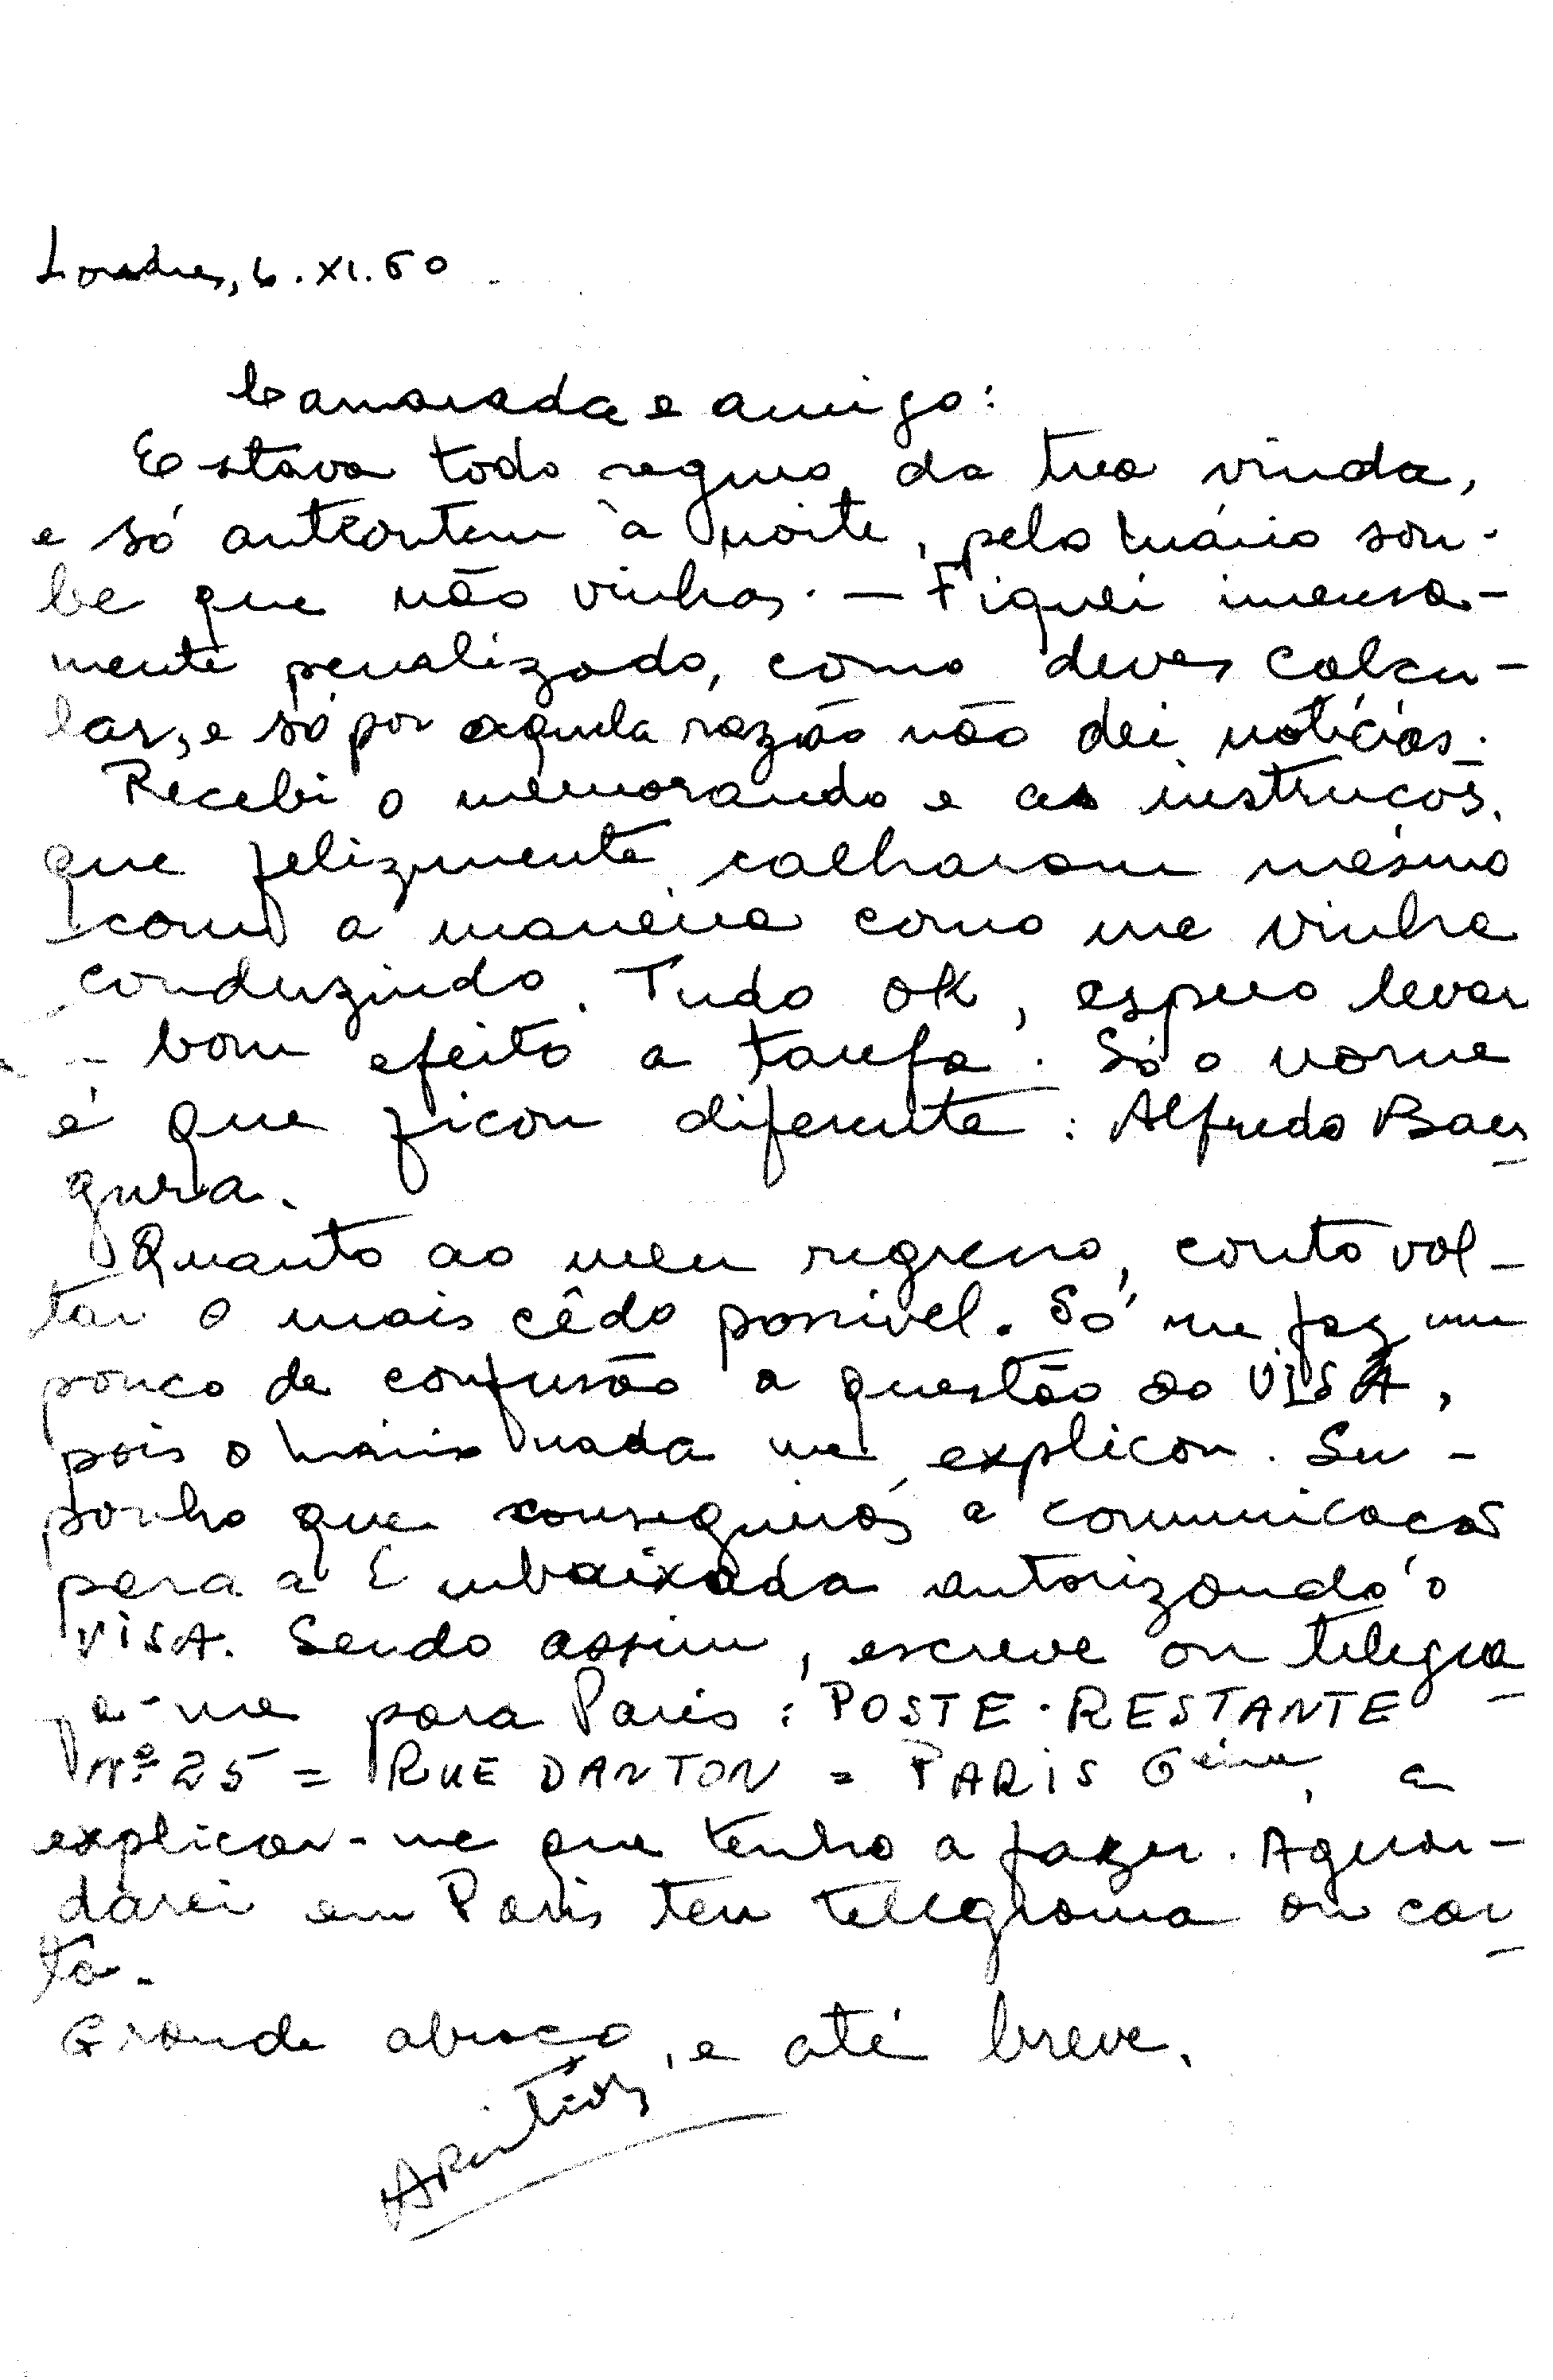 Londres, 6.XI.60
Camarada e amigo:
Estava todo seguro da tua vinda,
e só anteontem à noite, pelo Mário sou-
be que não vinhas. — Fiquei imensa-
mente penalizado, como deves calcu-
lar, e só por aquela razão não dei notícias.
Recebi o memorando e as instrucos,
que felizmente calharam mesmo
com a maneira como me vinha
conduzindo. Tudo OK, espero levar
a bom efeito a tarefa. Só o nome
é que ficou diferente: Alfredo Baer
gura.
Quanto ao meu regresso, conto vol-
tar o mais cêdo possivel. Só me faz um
pouco de confusão a questão do VISA,
pois o Mário nada me explicou. Su-
ponho que conseguirás a comunicacao
para a Embaixada autorizando o
VISA. Sendo assim, escreve ou telegra
fa-me para Paris: POSTE-RESTANTE
Nº 25 = RUE DANTON = PARIS 6ème, a
explicar-me que tenho a fazer. Aguar-
darei em Paris teu telegrama ou car
ta.
Grande abraço, e até breve.